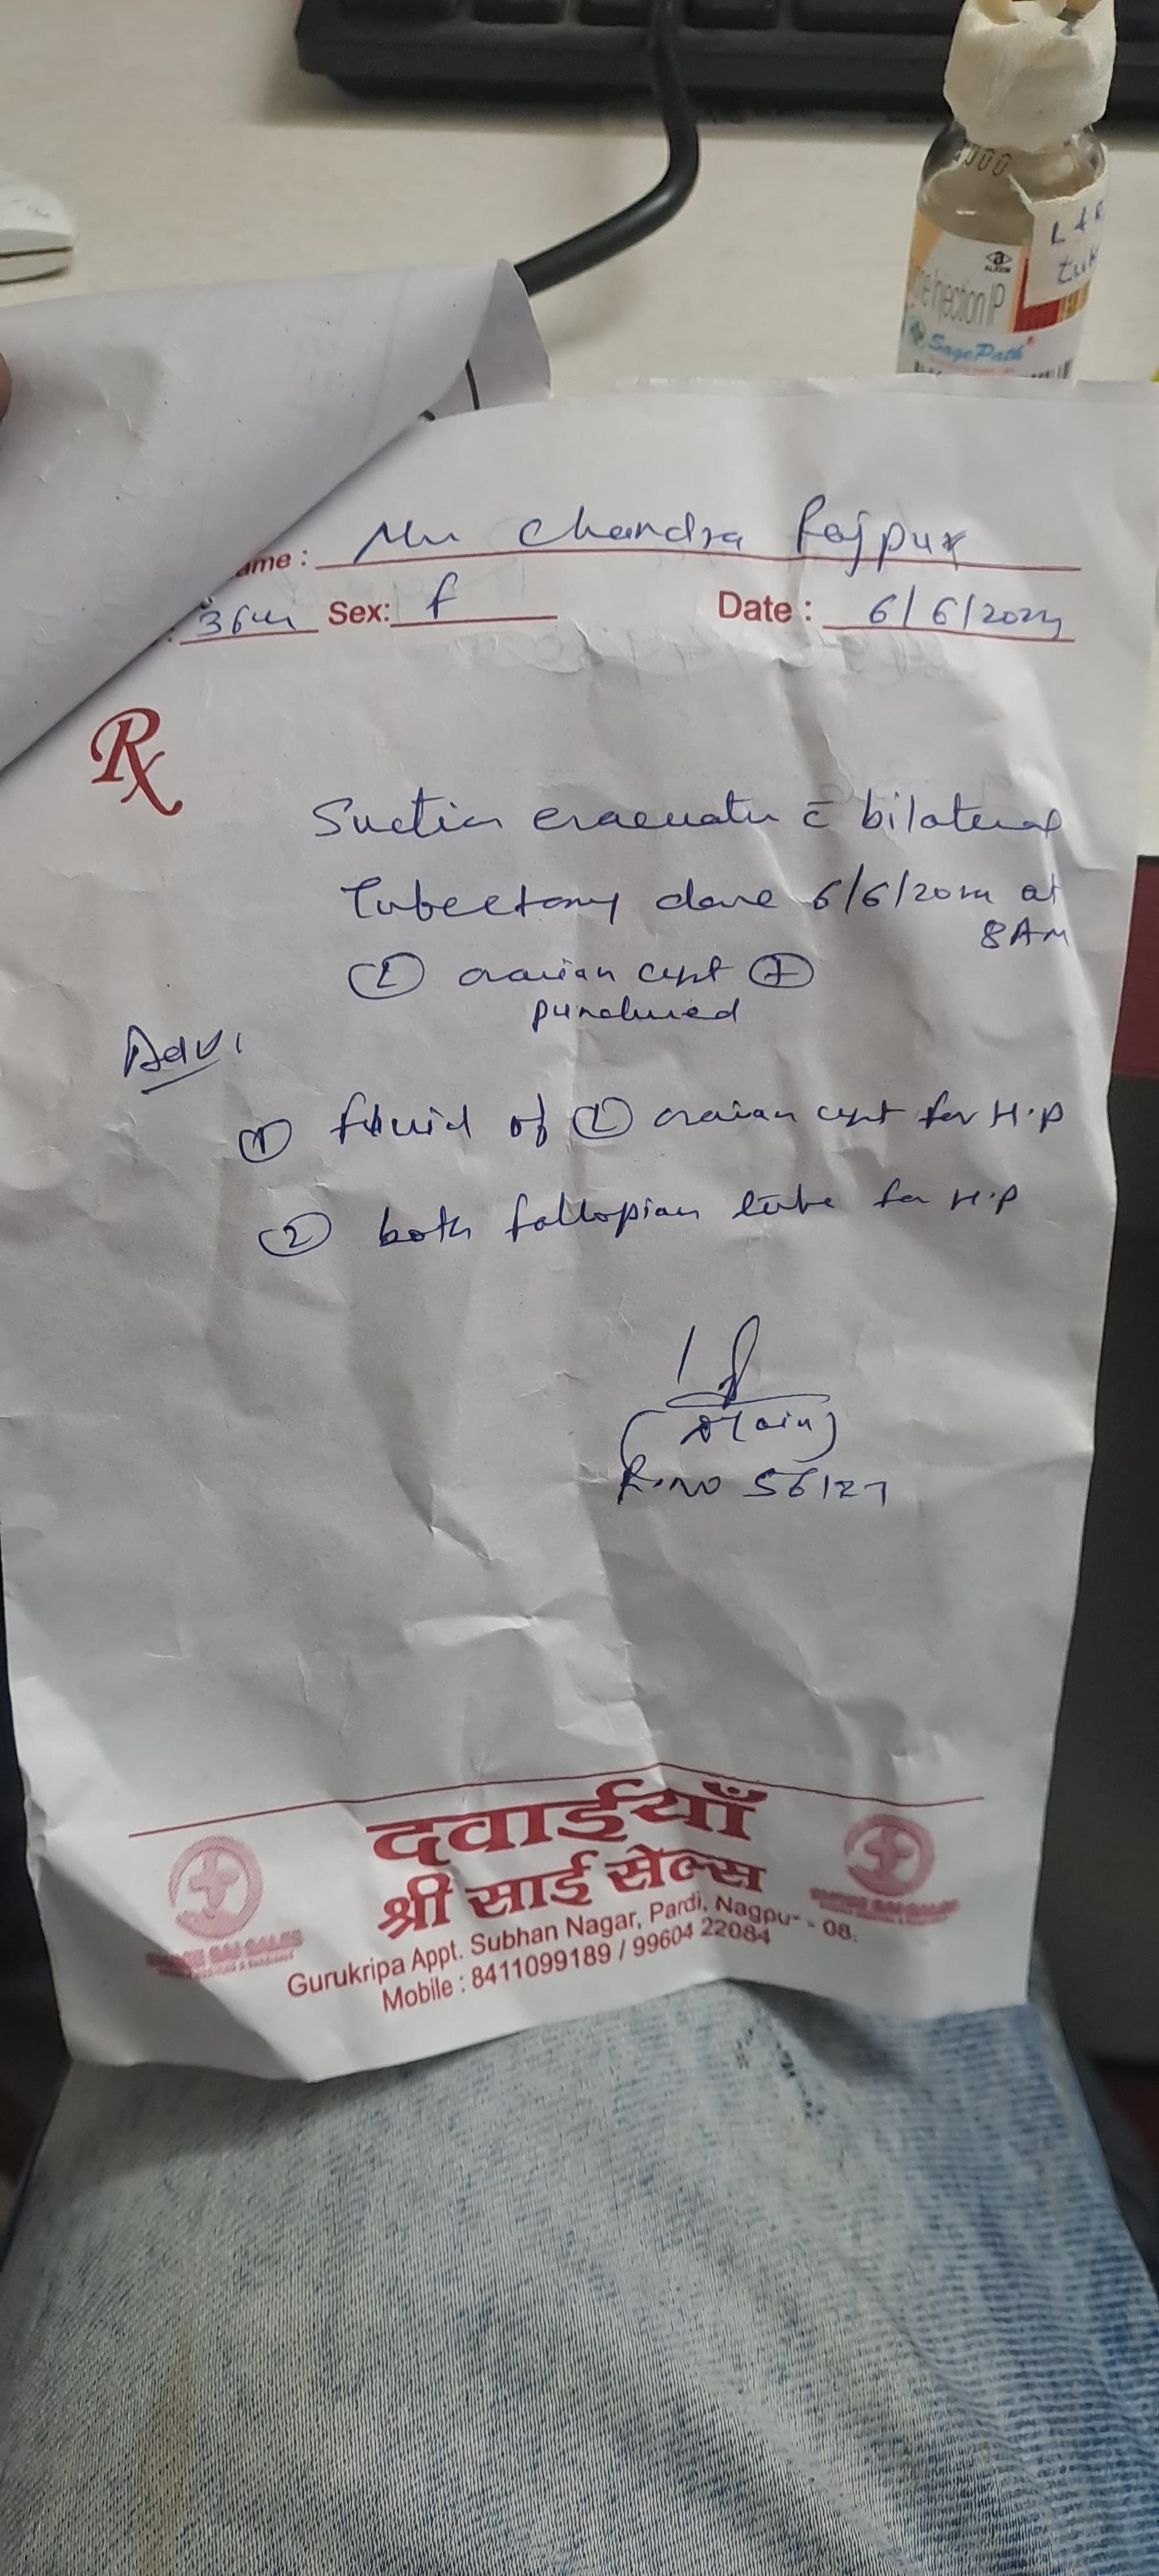 000
ALKEM
L & R
ne Injection IP
SagePath®
ame : Mrs Chandra Rajput
: Sex: f Date : 6/6/2024
Rx
Suction evacuatn c̄ bilateral
Tubectomy done 6/6/2024 at
8 AM
Ⓛ ovarian cyst ⊕
punctured
Adv:
① fluid of Ⓛ ovarian cyst for H.P
② both fallopian tube for H.P
R.NO 56127
दवाईयाँ
श्री साई सेल्स
SHREE SAI SALES
Gurukripa Appt. Subhan Nagar, Pardi, Nagpur - 08.
SHREE SAI SALES
Mobile : 8411099189 / 99604 22084